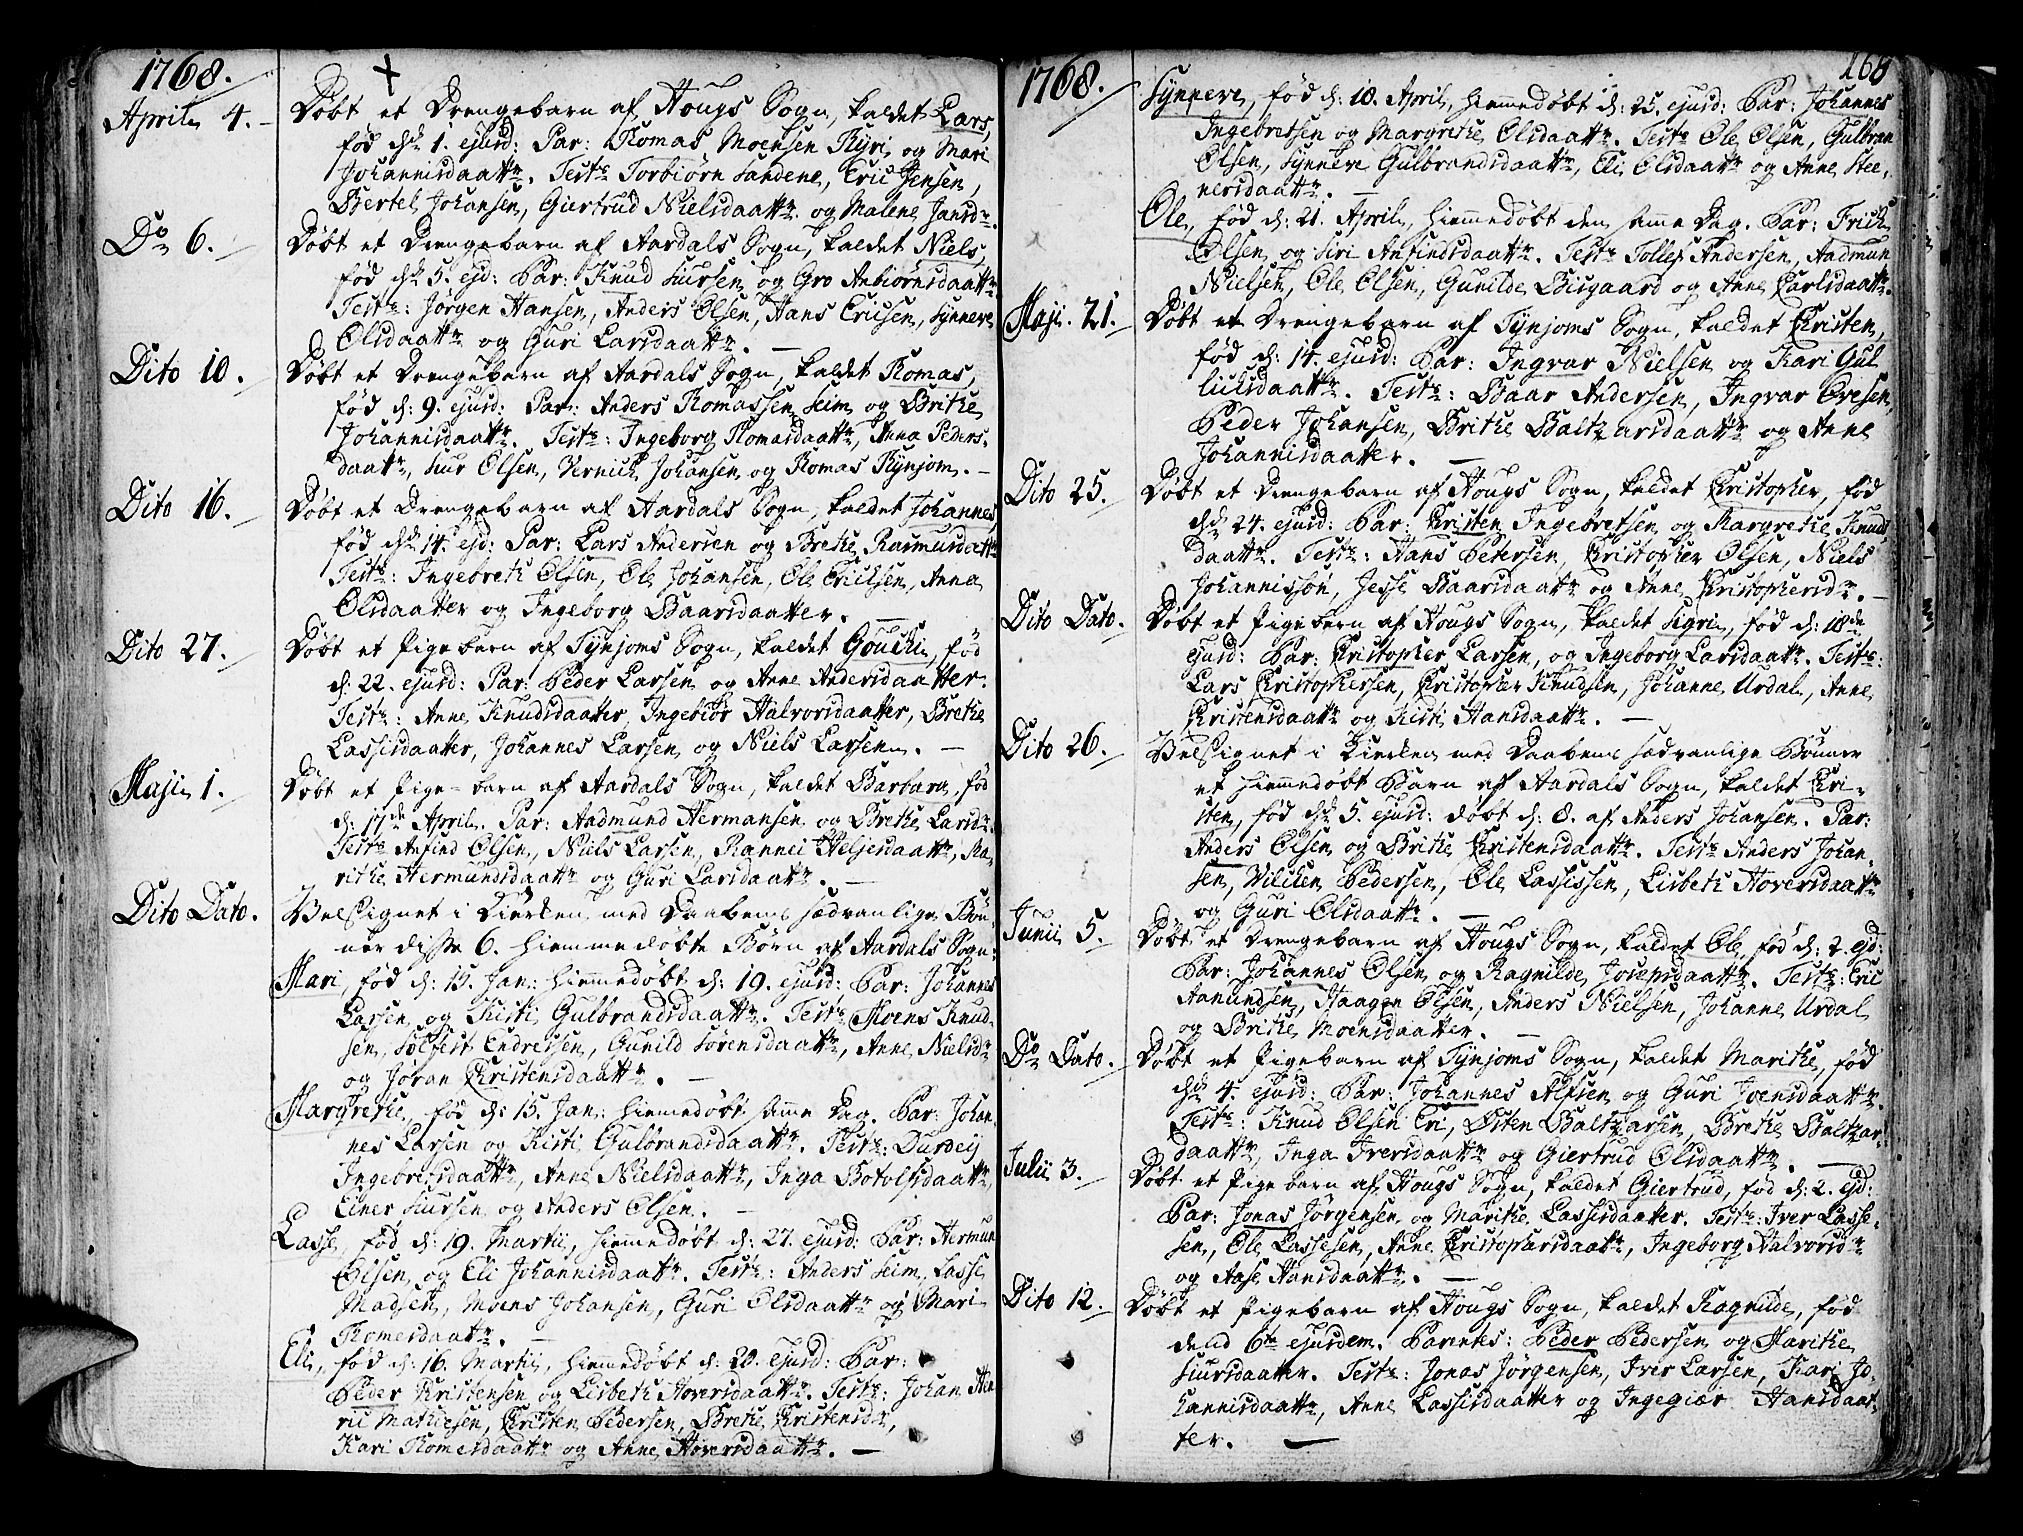 1768.
April 4. Døbt et Drengebarn af Hougs Sogn, kaldet Lars,
fød dh 1. ejusd: Par: Thomas Moensen Thyri og Mari
Johannisdaattr. Testr Torbiørn Sandene, Eric Jensen,
Bertel Johansen, Giertrud Nielsdaattr og Malene Jansdr.
Do 6. Døbt et Drengebarn af Aardals Sogn, kaldet Niels,
fød dh 5. ejd: Par: Knud Siursen og Gro Anbiørnsdaattr
Testr: Jørgen Hansen, Anders Olsen, Hans Ericsen, Synneve
Olsdaattr og Guri Larsdaattr. —
Dito 10. Døbt et Drengebarn af Aardals Sogn, kaldet Thomas,
fød d: 9. ejusd: Par: Anders Thomassen Seim og Brithe
Johannisdaattr. Testr: Ingeborg Thomasdaattr, Anna Peders-
daattr, Siur Olsen, Vernich Johansen og Thomas Thynjom. —
Dito 16. Døbt et Drengebarn af Aardals Sogn, kaldet Johannes
fød dh 14. ejd: Par: Lars Andersen og Brethe Rasmusdattr
Testr: Ingebreth Olsen, Ole Johansen, Ole Ericksen, Anna
Olsdaatter og Ingeborg Baarsdaatter. —
Dito 27. Døbt et Pigebarn af Tynjoms Sogn, kaldet Gouchi, fød
d: 22. ejusd: Par: Peder Larsen og Anne Andersdaatter.
Testr: Anne Knudsdaatter, Ingebiør Halvorsdaatter, Brethe
Lassisdaatter, Johannes Larsen og Niels Larsen. —
Maji 1. Døbt et Pige-barn af Aardals Sogn, kaldet Barbara, fød
d: 17de April. Par: Aadmund Hermansen og Brethe Larsdr.
Testr Anfind Olsen, Niels Larsen, Rannei Heljesdaattr, Ma-
rithe Hermundsdaattr og Guri Larsdaattr. —
Dito Dato. Velsignet i Kierken med Daabens sædvanlige Bøn-
ner disse 6. hiemmedøbte Børn af Aardals Sogn:
Mari, fød d: 15. Jan: hiemmedøbt d: 19. ejusd: Par: Johannes
Larsen og Kisti Gulbrandsdaattr. Testr Moens Knud-
sen, Solfest Endressen, Gunild Sørensdaattr, Anne Nielsdr
og Joran Christensdaattr. —
Margrethe, fød d: 15. Jan: hiemedøbt samme Dag. Par: Johan-
nes Larsen og Kisti Gulbrandsdaattr. Testr: Durdeij
Ingebretsdaattr, Anne Nielsdaattr, Inga Botolfsdaattr,
Einer Siursen og Anders Olsen. —
Lasse, fød d: 19. Martii, hiemmedøbt d: 27. ejusd: Par: Hermun
Olsen og Eli Johannisdaattr. Testr: Anders Seim, Lasse
Madsen, Moens Johansen, Guri Olsdaattr og Mari
Thomesdaattr. —
Eli, fød d: 16. Martii, hiemmedøbt d: 20. ejusd: Par:
Peder Christensen og Lisbeth Hoversdaattr. Testr: Johan Hen
ric Mathiesen, Christen Pedersen, Brethe Christensdr,
Kari Thomesdaattr og Anne Hoversdaattr. —
1768. 168
Synneve, fød d: 18. April, hiemmedøbt d: 25. ejusd: Par: Johannes
Ingebretsen og Margrethe Olsdaattr. Testr Ole Olsen, Gulbran
Olsen, Synneve Gulbrandsdaattr, Eli Olsdaattr og Anne Stee-
nersdaattr. —
Ole, fød d: 21. April, hiemmedøbt den samme Dag. Par: Frich
Olsen og Siri Anfindsdaattr. Testr Tollef Andersen, Aadmun
Nielsen, Ole Olsen, Gunilde Bisgaard og Anne Carlsdaattr.
Maji 21. Døbt et Drengebarn af Tynjoms Sogn, kaldet Christen,
fød d: 14. ejusd: Par: Ingvar Nielsen og Kari Gul
lichsdaattr. Testr: Baar Andersen, Ingvar Øresen,
Peder Johansen, Brithe Baltzarsdaattr og Anne
Johannisdaatter. —
Dito 25. Døbt et Drengebarn af Hougs Sogn, kaldet Christopher, fød
dh 24. ejusd: Par: Christen Ingebretsen og Margrethe Knuds
daattr. Testr: Hans Petersen, Christopher Olsen, Niels
Johannissøn, Jesse Baarsdaattr og Anne Christophersdr. —
Dito Dato. Døbt et Pigebarn af Hougs Sogn, kaldet Sigri, fød d: 18de
ejusd: Par: Christopher Larsen, og Ingeborg Larsdaattr. Testr:
Lars Christophersen, Christopher Knudsen, Johanne Urdal, Anne
Christensdaattr og Kisti Hansdaattr. —
Dito 26. Velsignet i Kierken med Daabens sædvanlige Bønner
et hiemmedøbt Barn af Aardals Sogn, kaldet Chri-
sten, fød dh 5. ejusd: døbt d: 8. af Anders Johansen. Par:
Anders Olsen og Brithe Christensdaattr. Testr Anders Johan-
sen, Vilchen Pedersen, Ole Lassissen, Lisbeth Hoversdaattr
og Guri Olsdaattr. —
Junii 5. Døbt et Drengebarn af Hougs Sogn, kaldet Ole, fød d: 2. ejd:
Par: Johannes Olsen og Ragnilde Josepsdaattr. Testr: Eric
Aamundsen, Haagen Olsen, Anders Nielsen, Johanne Urdal
og Brithe Moensdaatter. —
Do Dato. Døbt et Pigebarn af Tynjoms Sogn, kaldet Marithe, fød
dh 4. ejusd: Par: Johannes Alfsen og Guri Joensdaattr.
Testr: Knud Olsen Eri, Østen Baltzarsen, Brethe Baltzar-
daattr, Inga Iversdaattr og Giertrud Olsdaattr. —
Julii 3. Døbt et Pige barn af Hougs Sogn, kaldet Giertrud, fød d: 2. ejd:
Par: Jonas Jørgensen og Marithe Lassisdaatter. Testr: Iver Lasse-
sen, Ole Lassesen, Anne Christophersdaattr, Ingeborg Halvorsdr
og Aase Hansdaattr. —
Dito 12. Døbt et Pigebarn af Hougs Sogn, kaldet Ragnilde, fød
dend 6te ejusdem. Parentes: Peder Pedersen og Marithe
Siursdaatter. Testr: Jonas Jørgensen, Iver Larsen, Kari Jo-
hannisdaattr, Anne Lassisdaatter og Ingegiær Hansdaat-
ter. —